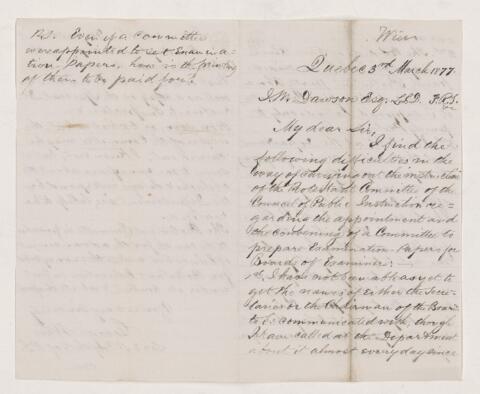 P.S. Even if a Committee
were appointed to set Examina-
tion Papers, how is the printing
of them to be paid for?
Quebec 3rd March 1877
J.W. Dawson Esq. LL.D. F.R.S.
My dear Sir,
I find the
following difficulties in the
way of carrying out the instruction
of the Protestant Committee of the
Council of Public Instruction re-
garding the appointment and
the convening of a Committee to
prepare Examination Papers for
Boards of Examiners:—
1st, I have not been able as yet to
get the names of either the Secre-
taries or the Chairman of the Boards
to be communicated with, though
I have called at the Department
about it almost every day since